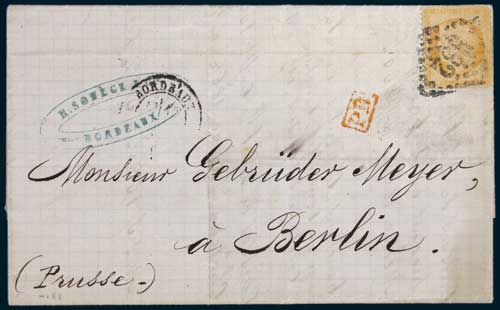 BORDEAUX
BORDEAUX
P.D.
Monsieur Gebrüder Meyer,
à Berlin.
(Prusse.)